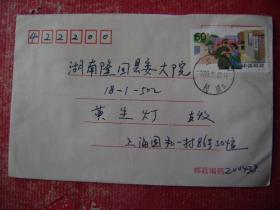 422200
50
中国邮政
湖南隆回县委大院
18-1-502
黄生灯 收
上海国和一村86号204室
邮政编码 200438